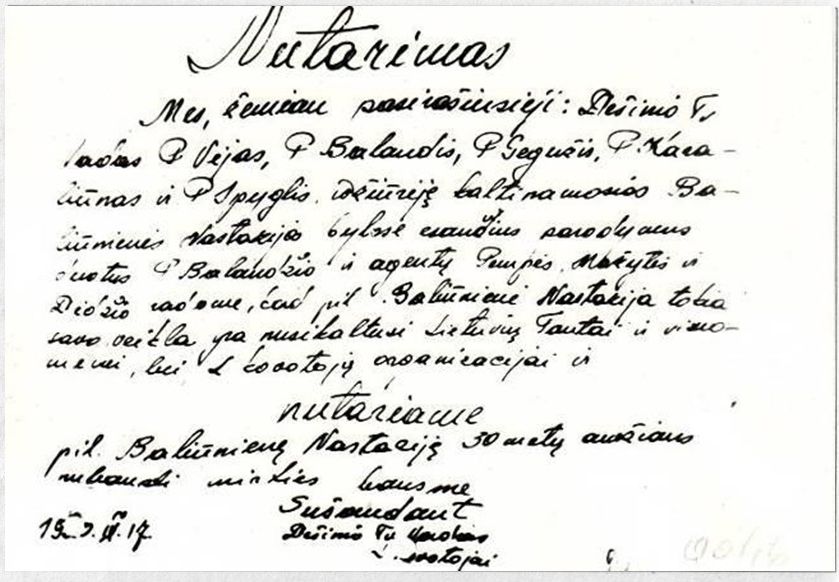 Nutarimas
Mes, žemiau pasirašiusieji: Dešimo Tv
vadas P Vėjas, P Balandis, P Gegužis, P Kara-
liūnas ir P Spyglis, išžiūrėję kaltinamosios Ba-
liūnienės Nastazijos byloje esančius parodymus
duotus P Balandžio ir agentų Pempės, Mažytės ir
Didžio radome, kad pil. Baliūnienė Nastazija tokia
savo veikla yra nusikaltusi Lietuvių Tautai ir visuo-
menei, bei L kovotojų organizacijai ir
nutariame
pil. Baliūnienę Nastaziją 30 metų amžiaus
nubausti mirties bausme
Sušaudant
Dešimo Tv vadas
L. kovotojai